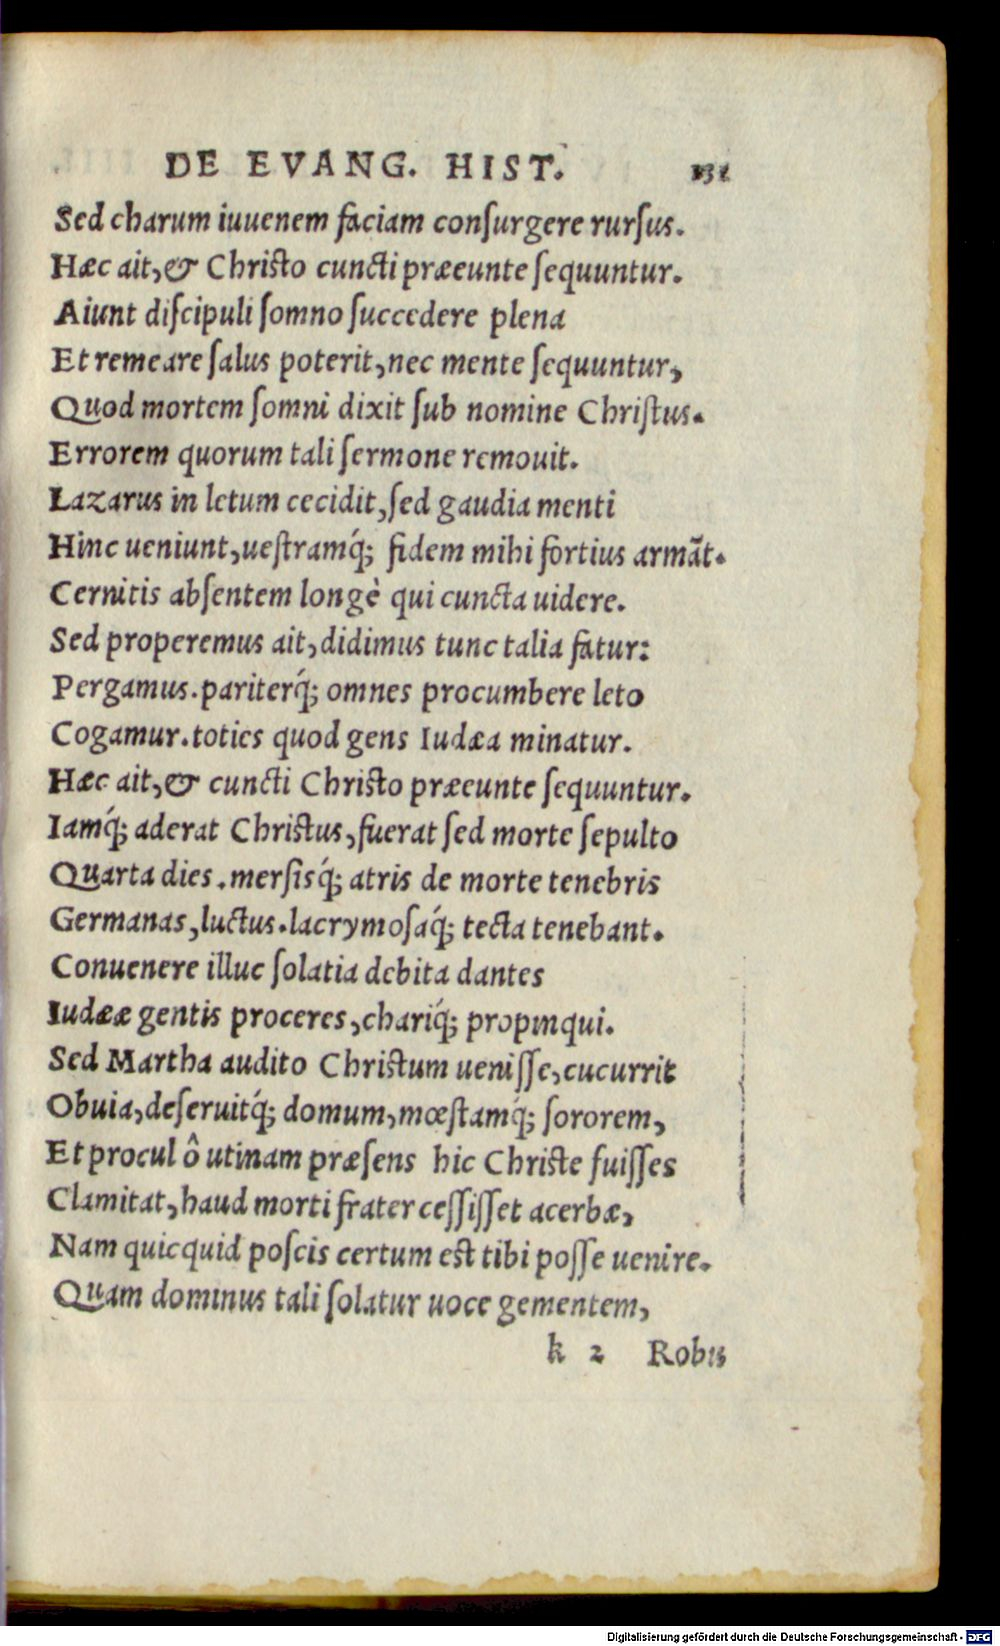 DE EVANG. HIST. 131
Sed charum iuuenem faciam conſurgere rurſus.
Hæc ait, & Chriſto cuncti præeunte ſequuntur.
Aiunt diſcipuli ſomno ſuccedere plena
Et remeare ſalus poterit, nec mente ſequuntur,
Quod mortem ſomni dixit ſub nomine Chriſtus.
Errorem quorum tali ſermone remouit.
Lazarus in letum cecidit, ſed gaudia menti
Hinc ueniunt, ueſtramq́; fidem mihi fortius armãt.
Cernitis abſentem longè qui cuncta uidere.
Sed properemus ait, didimus tunc talia fatur:
Pergamus. pariterq́; omnes procumbere leto
Cogamur. toties quod gens Iudæa minatur.
Hæc ait, & cuncti Chriſto præeunte ſequuntur.
Iamq́; aderat Chriſtus, fuerat ſed morte ſepulto
Quarta dies. merſisq́; atris de morte tenebris
Germanas, luctus. lacrymoſaq́; tecta tenebant.
Conuenere illuc ſolatia debita dantes
Iudææ gentis proceres, chariq́; propinqui.
Sed Martha audito Chriſtum ueniſſe, cucurrit
Obuia, deſeruitq́; domum, mœſtamq́; ſororem,
Et procul ô utinam præſens hic Chriſte fuiſſes
Clamitat, haud morti frater ceſſiſſet acerbæ,
Nam quicquid poſcis certum eſt tibi poſſe uenire.
Quam dominus tali ſolatur uoce gementem,
k 2 Robis
Digitalisierung gefördert durch die Deutsche Forschungsgemeinschaft - DFG